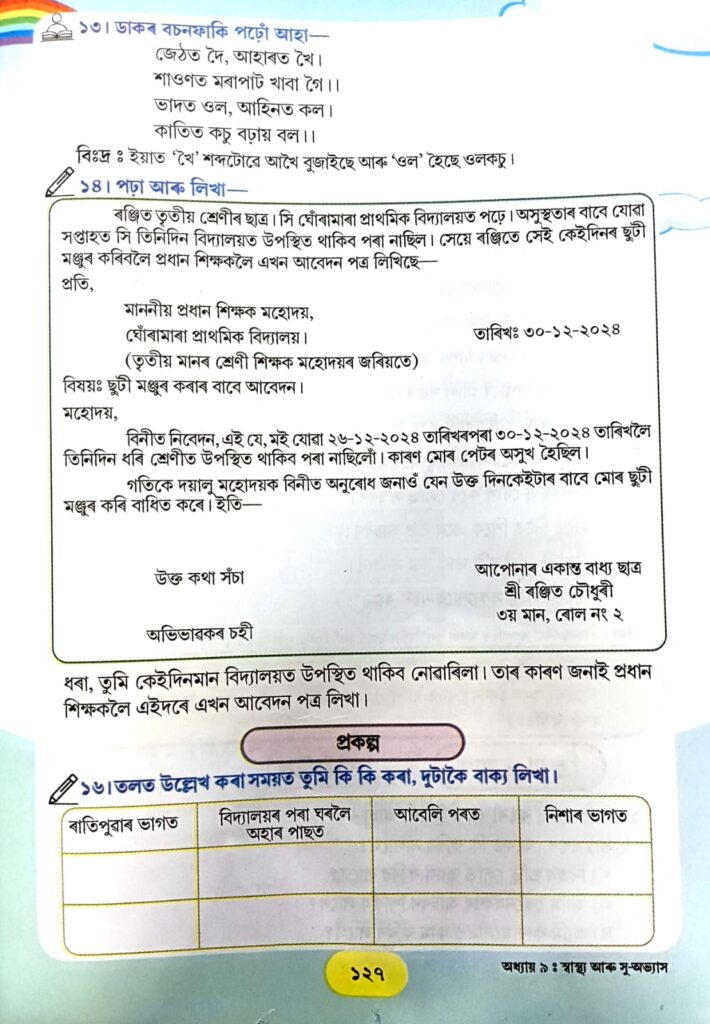 ১৩। ডাকৰ বচনফাকি পঢ়োঁ আহা—
জেঠত দৈ, আহাৰত খৈ।
শাওণত মৰাপাট খাবা গৈ।।
ভাদত ওল, আহিনত কল।
কাতিত কচু বঢ়ায় বল।।
বিঃদ্ৰ ঃ ইয়াত ‘খৈ’ শব্দটোৱে আখৈ বুজাইছে আৰু ‘ওল’ হৈছে ওলকচু।
১৪। পঢ়া আৰু লিখা—
ৰঞ্জিত তৃতীয় শ্ৰেণীৰ ছাত্ৰ। সি ঘোঁৰামাৰা প্ৰাথমিক বিদ্যালয়ত পঢ়ে। অসুস্থতাৰ বাবে যোৱা
সপ্তাহত সি তিনিদিন বিদ্যালয়ত উপস্থিত থাকিব পৰা নাছিল। সেয়ে ৰঞ্জিতে সেই কেইদিনৰ ছুটী
মঞ্জুৰ কৰিবলৈ প্ৰধান শিক্ষকলৈ এখন আবেদন পত্ৰ লিখিছে—
প্ৰতি,
মাননীয় প্ৰধান শিক্ষক মহোদয়,
ঘোঁৰামাৰা প্ৰাথমিক বিদ্যালয়। তাৰিখঃ ৩০-১২-২০২৪
(তৃতীয় মানৰ শ্ৰেণী শিক্ষক মহোদয়ৰ জৰিয়তে)
বিষয়ঃ ছুটী মঞ্জুৰ কৰাৰ বাবে আবেদন।
মহোদয়,
বিনীত নিবেদন, এই যে, মই যোৱা ২৬-১২-২০২৪ তাৰিখৰপৰা ৩০-১২-২০২৪ তাৰিখলৈ
তিনিদিন ধৰি শ্ৰেণীত উপস্থিত থাকিব পৰা নাছিলোঁ। কাৰণ মোৰ পেটৰ অসুখ হৈছিল।
গতিকে দয়ালু মহোদয়ক বিনীত অনুৰোধ জনাওঁ যেন উক্ত দিনকেইটাৰ বাবে মোৰ ছুটী
মঞ্জুৰ কৰি বাধিত কৰে। ইতি—
উক্ত কথা সঁচা আপোনাৰ একান্ত বাধ্য ছাত্ৰ
শ্ৰী ৰঞ্জিত চৌধুৰী
৩য় মান, ৰোল নং ২
অভিভাৱকৰ চহী
ধৰা, তুমি কেইদিনমান বিদ্যালয়ত উপস্থিত থাকিব নোৱাৰিলা। তাৰ কাৰণ জনাই প্ৰধান
শিক্ষকলৈ এইদৰে এখন আবেদন পত্ৰ লিখা।
প্ৰকল্প
১৬। তলত উল্লেখ কৰা সময়ত তুমি কি কি কৰা, দুটাকৈ বাক্য লিখা।
ৰাতিপুৱাৰ ভাগত বিদ্যালয়ৰ পৰা ঘৰলৈ আবেলি পৰত নিশাৰ ভাগত
অহাৰ পাছত
১২৭
অধ্যায় ৯ ঃ স্বাস্থ্য আৰু সু-অভ্যাস